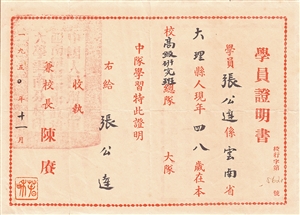 學員證明書
學員張公達係雲南省
大理縣人現年四八歲在本
校高級研究班總隊　大隊
中隊學習特此證明
右給　張公達
收執
兼校長陳賡
一九五〇年十一月